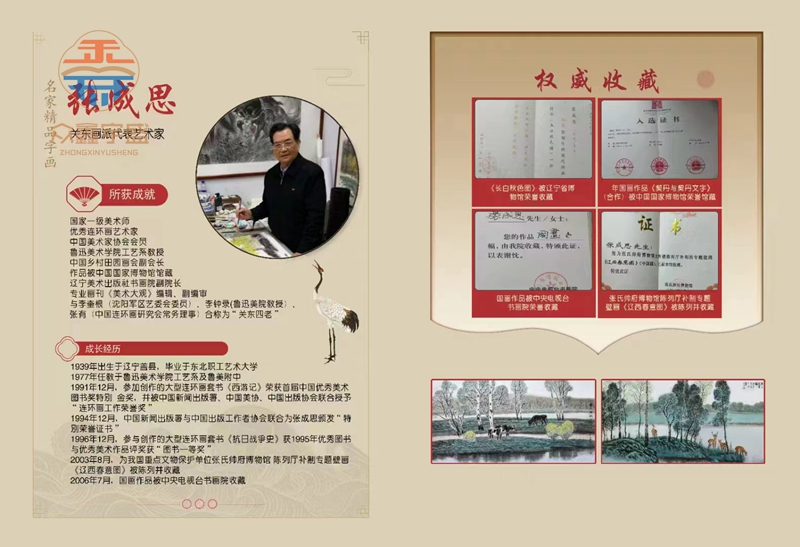 名家精品字画
张成思
关东画派代表艺术家
众鑫宇盛
ZHONGXINYUSHENG
所获成就
国家一级美术师
优秀连环画艺术家
中国美术家协会会员
鲁迅美术学院工艺系教授
中国乡村田园画会副会长
作品被中国国家博物馆馆藏
辽宁美术出版社书画院副院长
专业画刊《美术大观》编辑、副编审
与李秉根（沈阳军区艺委会委员）、李钟录(鲁迅美院教授)、
张有（中国连环画研究会常务理事）合称为“关东四老”
成长经历
1939年出生于辽宁盖县，毕业于东北职工艺术大学
1977年任教于鲁迅美术学院工艺系及鲁美附中
1991年12月，参加创作的大型连环画套书《西游记》荣获首届中国优秀美术
图书奖特别 金奖，并被中国新闻出版署、中国美协、中国出版协会联合授予
“连环画工作荣誉奖”
1994年12月，中国新闻出版署与中国出版工作者协会联合为张成思颁发“特
别荣誉证书”
1996年12月，参与创作的大型连环画套书《抗日战争史》获1995年优秀图书
与优秀美术作品评奖获“图书一等奖”
2003年8月，为我国重点文物保护单位张氏帅府博物馆 陈列厅补制专题壁画
《辽西春意图》被陈列并收藏
2006年7月，国画作品被中央电视台书画院收藏
权威收藏
入选证书
《长白秋色图》被辽宁省博
物馆荣誉收藏
年国画作品《契丹与契丹文字》
（合作）被中国国家博物馆荣誉馆藏
张成思先生/女士：
您的作品 国画
幅，由我院收藏，特颁此证，
以表谢忱。
国画作品被中央电视台
书画院荣誉收藏
证书
张成思先生：
张氏帅府博物馆陈列厅补制专题
壁画《辽西春意图》被陈列并收藏